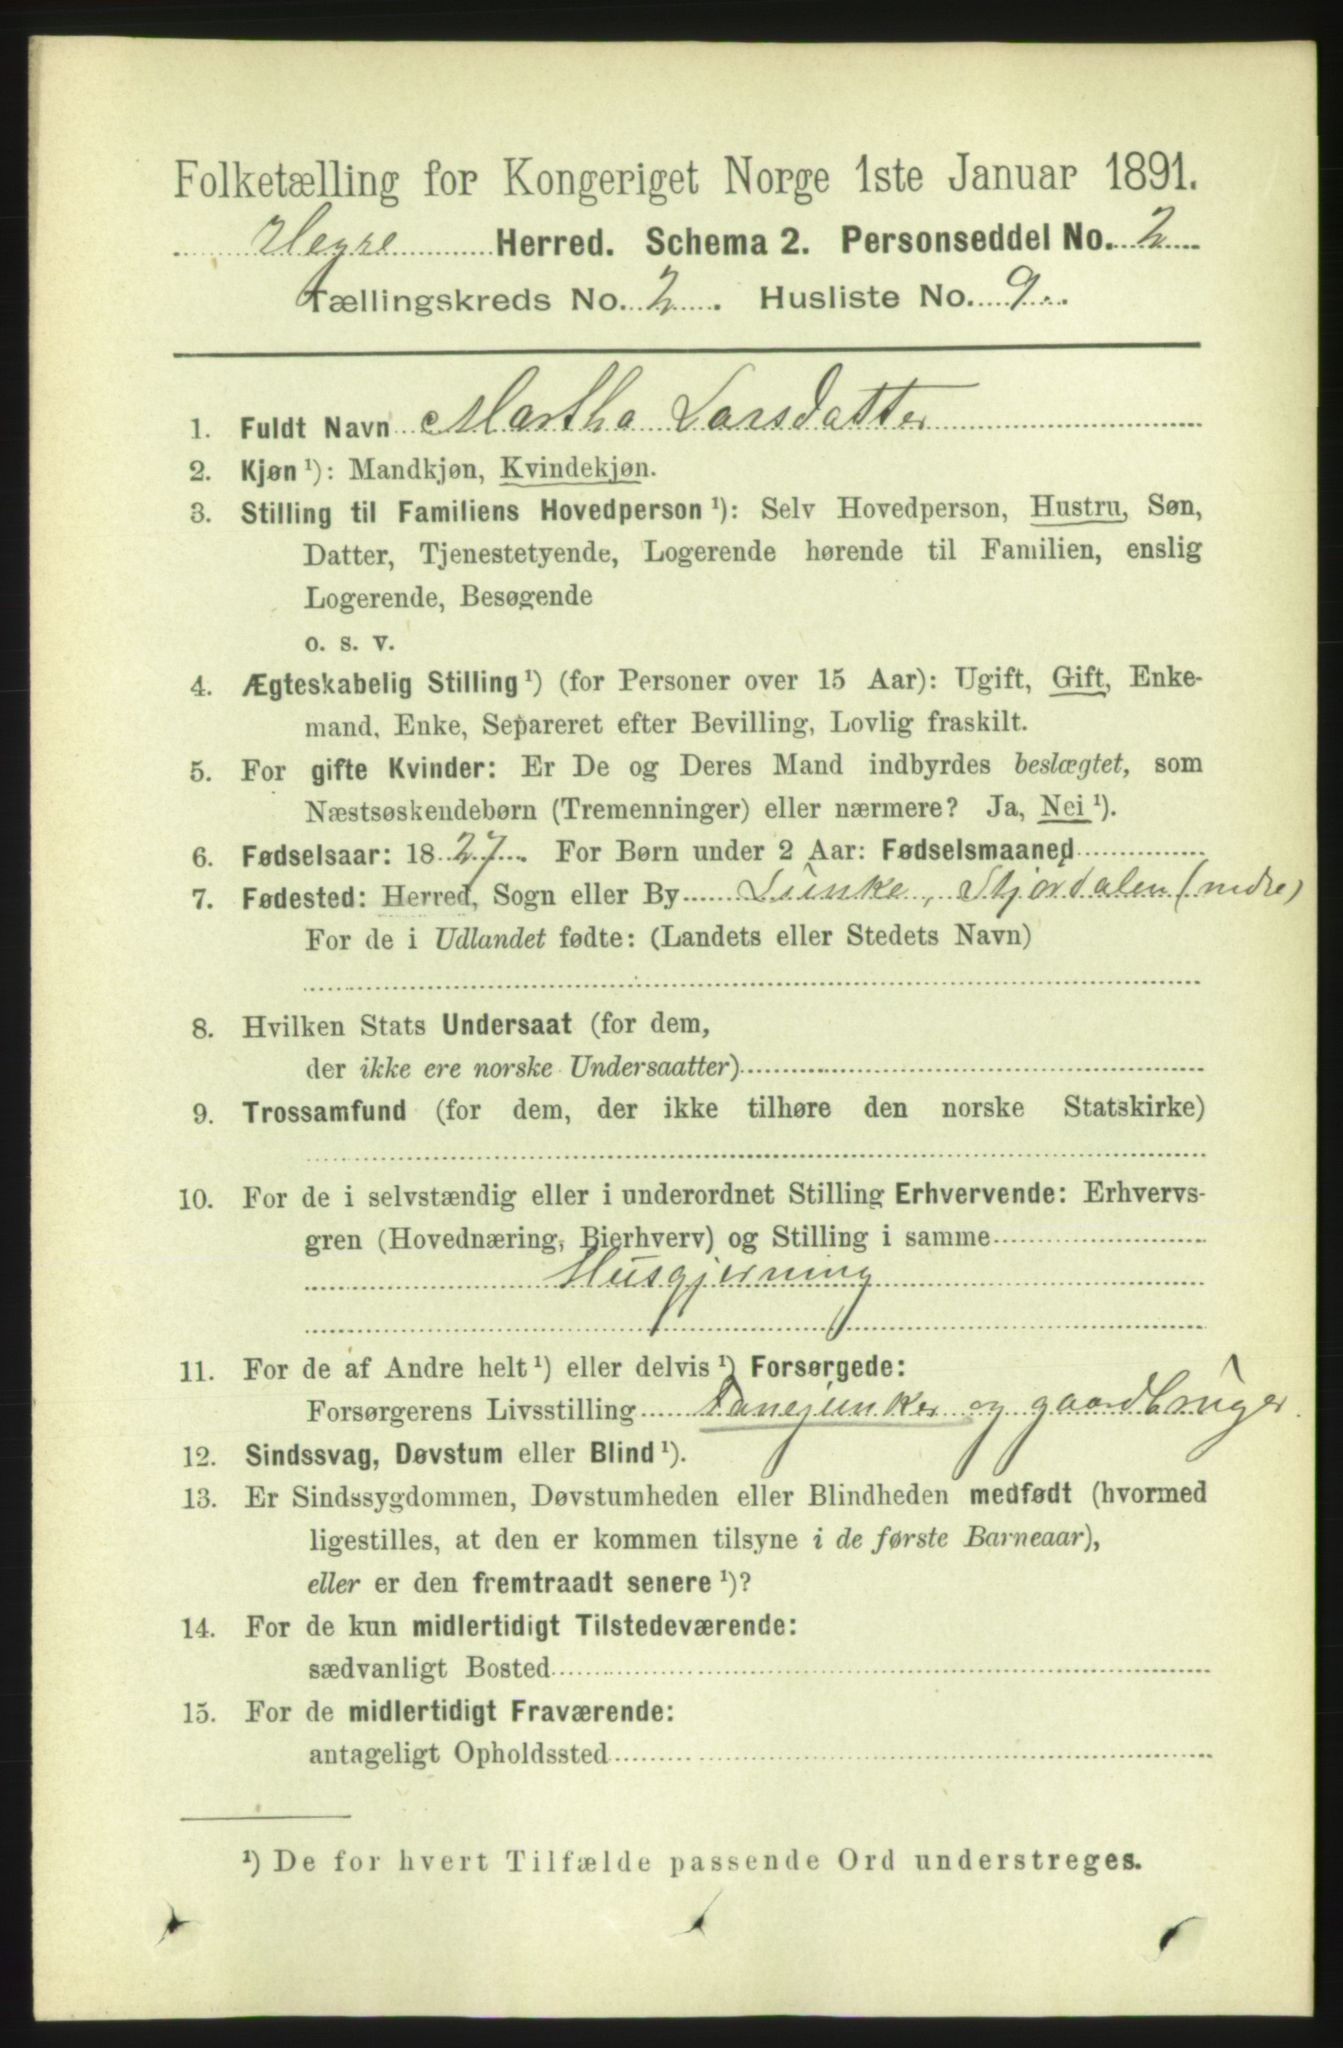 Folketælling for Kongeriget Norge 1ste Januar 1891.
Hegre Herred. Schema 2. Personseddel No. 2
Tællingskreds No. 2. Husliste No. 9.
1. Fuldt Navn Martha Larsdatter
2. Kjøn ¹): Mandkjøn, Kvindekjøn.
3. Stilling til Familiens Hovedperson ¹): Selv Hovedperson, Hustru, Søn,
Datter, Tjenestetyende, Logerende hørende til Familien, enslig
Logerende, Besøgende
o. s. v.
4. Ægteskabelig Stilling ¹) (for Personer over 15 Aar): Ugift, Gift, Enke-
mand, Enke, Separeret efter Bevilling, Lovlig fraskilt.
5. For gifte Kvinder: Er De og Deres Mand indbyrdes beslægtet, som
Næstsøskendebørn (Tremenninger) eller nærmere? Ja, Nei ¹).
6. Fødselsaar: 1827. For Børn under 2 Aar: Fødselsmaaned
7. Fødested: Herred, Sogn eller By Lunke, Stjordalen (nedre)
For de i Udlandet fødte: (Landets eller Stedets Navn)
8. Hvilken Stats Undersaat (for dem,
der ikke ere norske Undersaatter)
9. Trossamfund (for dem, der ikke tilhøre den norske Statskirke)
10. For de i selvstændig eller i underordnet Stilling Erhvervende: Erhvervs-
gren (Hovednæring, Bierhverv) og Stilling i samme
Husgjerning
11. For de af Andre helt ¹) eller delvis ¹) Forsørgede:
Forsørgerens Livsstilling og gaardbruger
12. Sindssvag, Døvstum eller Blind ¹).
13. Er Sindssygdommen, Døvstumheden eller Blindheden medfødt (hvormed
ligestilles, at den er kommen tilsyne i de første Barneaar),
eller er den fremtraadt senere ¹)?
14. For de kun midlertidigt Tilstedeværende:
sædvanligt Bosted
15. For de midlertidigt Fraværende:
antageligt Opholdssted
¹) De for hvert Tilfælde passende Ord understreges.